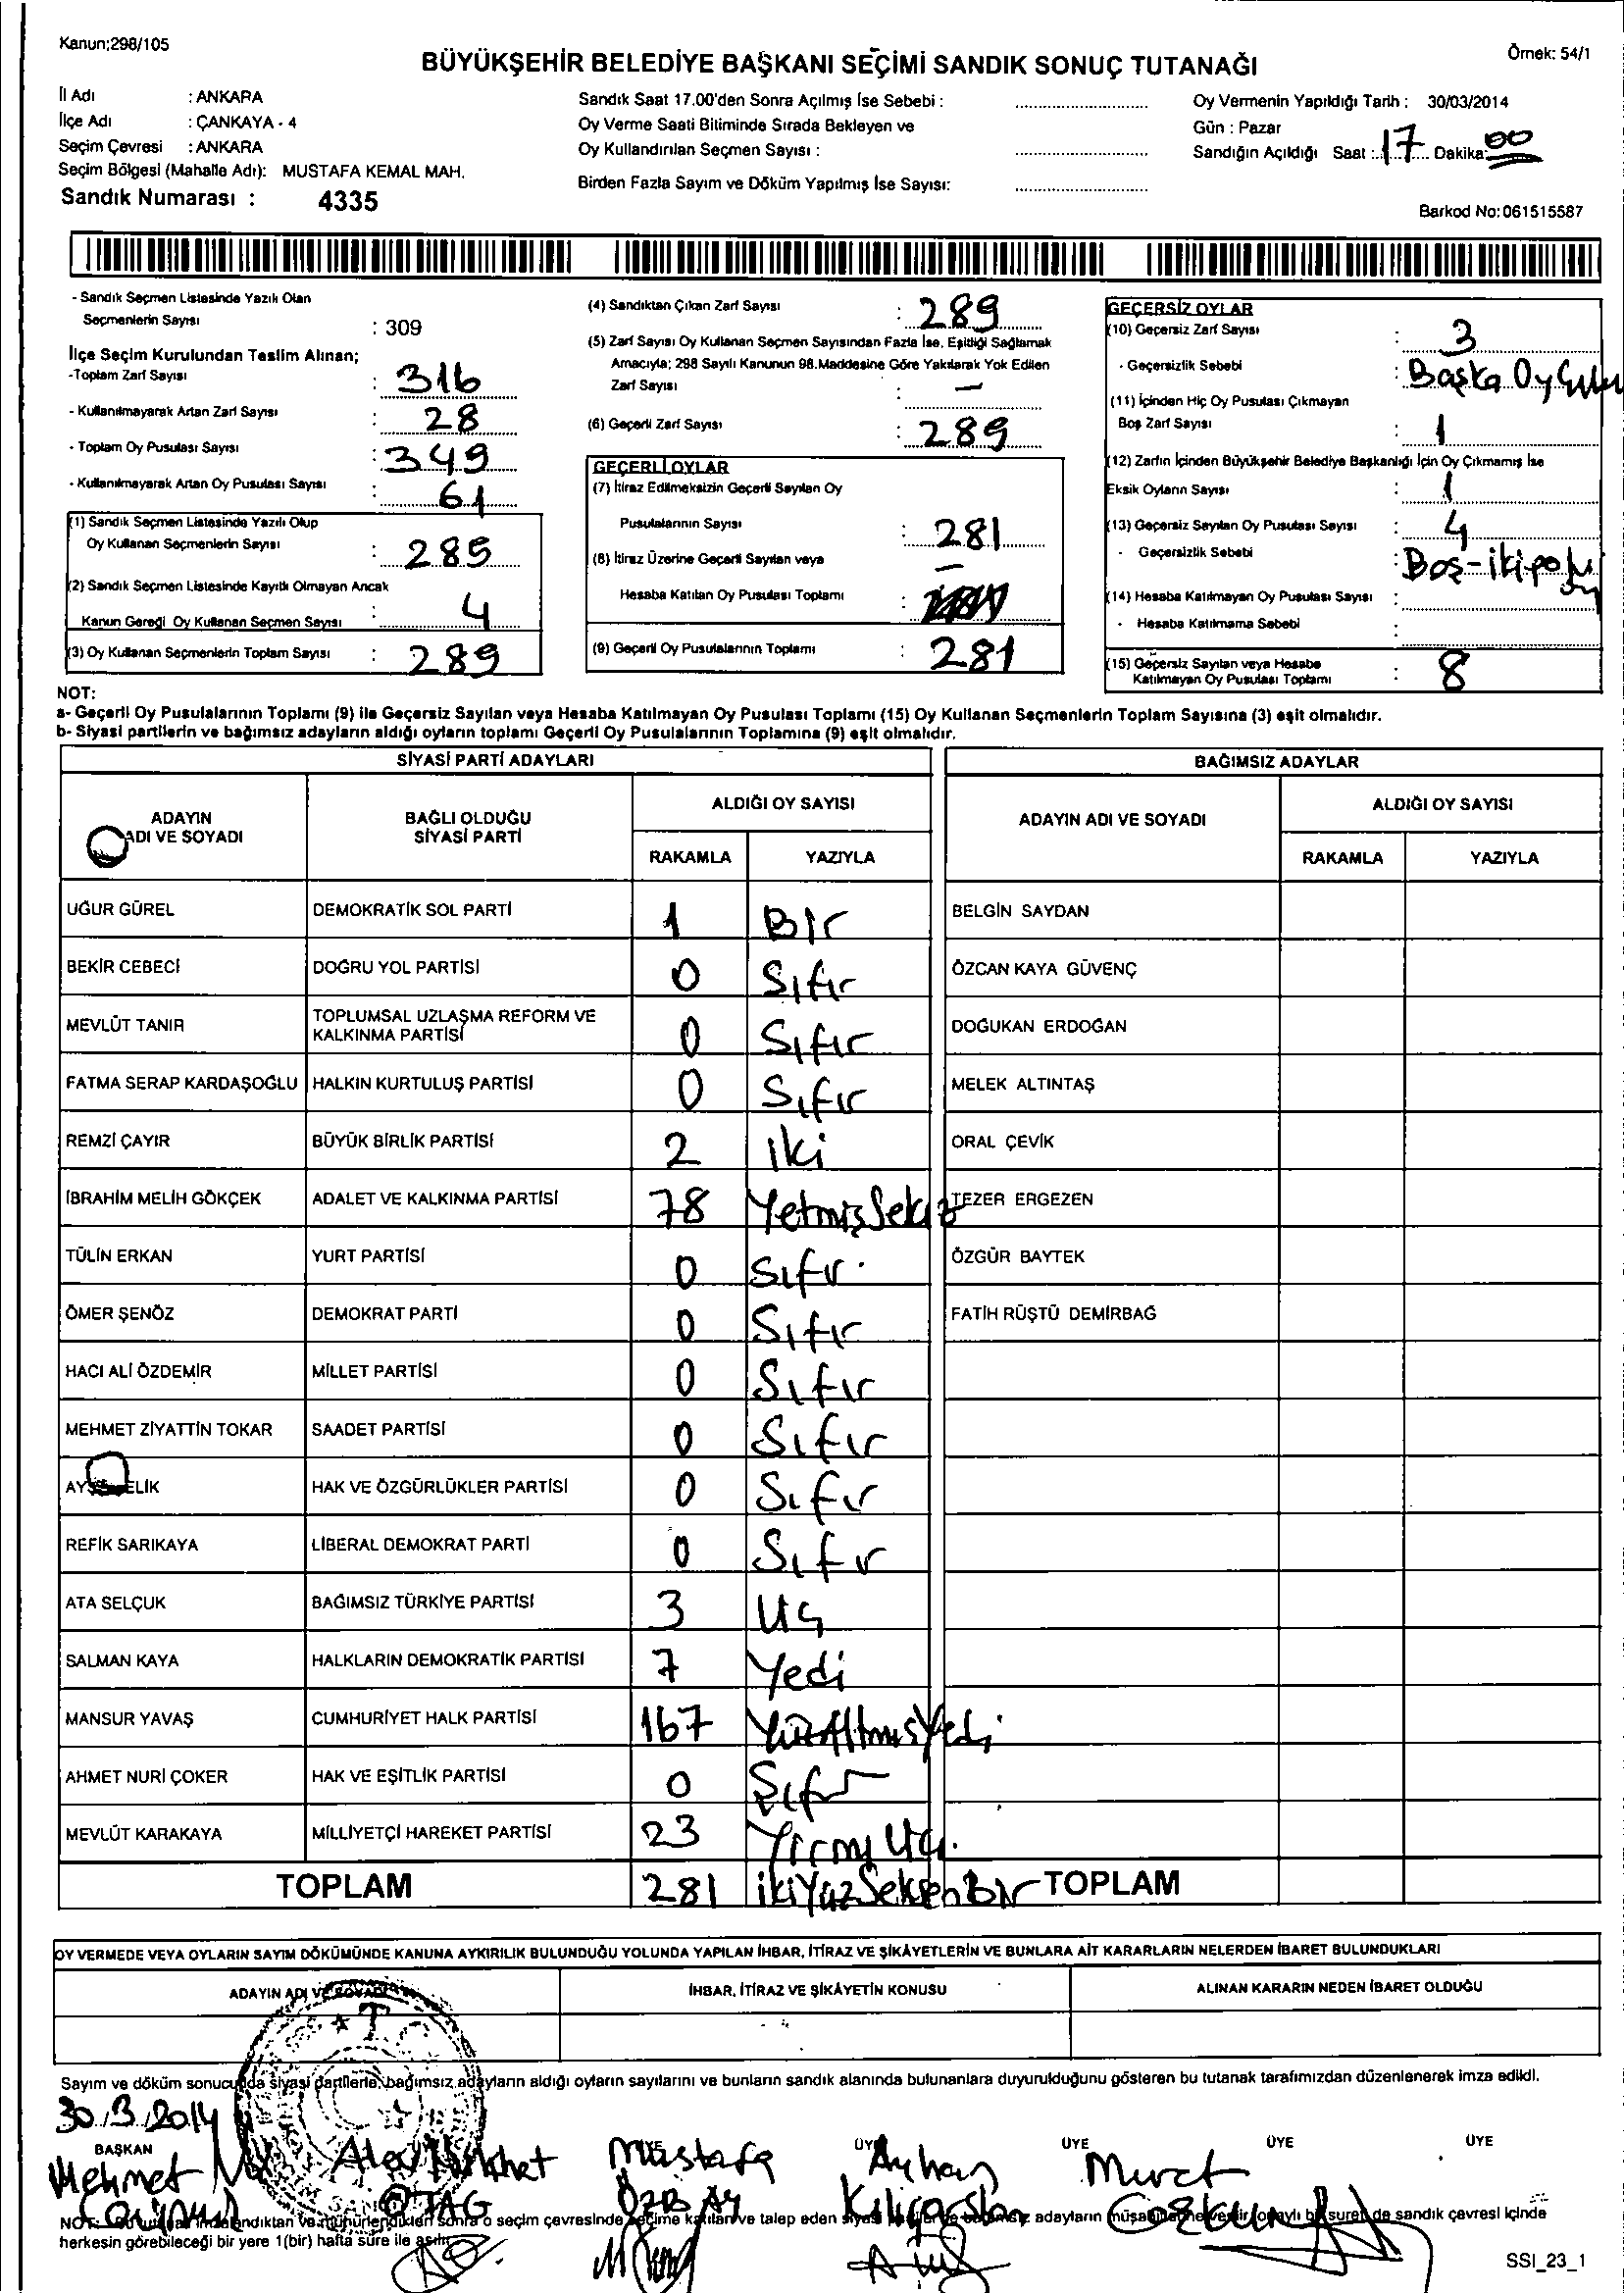 Kanun;298/105
Örnek: 54/1
BÜYÜKŞEHİR BELEDİYE BAŞKANI SEÇİMİ SANDIK SONUÇ TUTANAĞI
İl Adı : ANKARA
İlçe Adı : ÇANKAYA - 4
Seçim Çevresi : ANKARA
Seçim Bölgesi (Mahalle Adı): MUSTAFA KEMAL MAH.
Sandık Numarası : 4335
Sandık Saat 17.00'den Sonra Açılmış İse Sebebi :
Oy Verme Saati Bitiminde Sırada Bekleyen ve
Oy Kullandırılan Seçmen Sayısı :
Birden Fazla Sayım ve Döküm Yapılmış İse Sayısı:
Oy Vermenin Yapıldığı Tarih : 30/03/2014
Gün : Pazar
Sandığın Açıldığı Saat : 17 Dakika: 00
Barkod No:061515587
- Sandık Seçmen Listesinde Yazılı Olan
Seçmenlerin Sayısı : 309
İlçe Seçim Kurulundan Teslim Alınan;
-Toplam Zarf Sayısı : 316
- Kullanılmayarak Artan Zarf Sayısı : 28
- Toplam Oy Pusulası Sayısı : 349
- Kullanılmayarak Artan Oy Pusulası Sayısı : 61
(1) Sandık Seçmen Listesinde Yazılı Olup
Oy Kullanan Seçmenlerin Sayısı : 285
(2) Sandık Seçmen Listesinde Kayıtlı Olmayan Ancak
Kanun Gereği Oy Kullanan Seçmen Sayısı : 4
(3) Oy Kullanan Seçmenlerin Toplam Sayısı : 289
(4) Sandıktan Çıkan Zarf Sayısı : 289
(5) Zarf Sayısı Oy Kullanan Seçmen Sayısından Fazla İse, Eşitliği Sağlamak
Amacıyla; 298 Sayılı Kanunun 98.Maddesine Göre Yakılarak Yok Edilen
Zarf Sayısı : —
(6) Geçerli Zarf Sayısı : 289
GEÇERLİ OYLAR
(7) İtiraz Edilmeksizin Geçerli Sayılan Oy
Pusulalarının Sayısı : 281
(8) İtiraz Üzerine Geçerli Sayılan veya
Hesaba Katılan Oy Pusulası Toplamı : —
(9) Geçerli Oy Pusulalarının Toplamı : 281
GEÇERSİZ OYLAR
(10) Geçersiz Zarf Sayısı : 3
- Geçersizlik Sebebi : Başka Oy
(11) İçinden Hiç Oy Pusulası Çıkmayan
Boş Zarf Sayısı : 1
(12) Zarfın İçinden Büyükşehir Belediye Başkanlığı İçin Oy Çıkmamış İse
Eksik Oyların Sayısı : 1
(13) Geçersiz Sayılan Oy Pusulası Sayısı : 4
- Geçersizlik Sebebi : Boş-iki
(14) Hesaba Katılmayan Oy Pusulası Sayısı :
- Hesaba Katılmama Sebebi :
(15) Geçersiz Sayılan veya Hesaba
Katılmayan Oy Pusulası Toplamı : 8
NOT:
a- Geçerli Oy Pusulalarının Toplamı (9) ile Geçersiz Sayılan veya Hesaba Katılmayan Oy Pusulası Toplamı (15) Oy Kullanan Seçmenlerin Toplam Sayısına (3) eşit olmalıdır.
b- Siyasi partilerin ve bağımsız adayların aldığı oyların toplamı Geçerli Oy Pusulalarının Toplamına (9) eşit olmalıdır.
SİYASİ PARTİ ADAYLARI
ADAYIN
ADI VE SOYADI
BAĞLI OLDUĞU
SİYASİ PARTİ
ALDIĞI OY SAYISI
RAKAMLA YAZIYLA
UĞUR GÜREL DEMOKRATİK SOL PARTİ 1 Bir
BEKİR CEBECİ DOĞRU YOL PARTİSİ 0 Sıfır
MEVLÜT TANIR TOPLUMSAL UZLAŞMA REFORM VE
KALKINMA PARTİSİ 0 Sıfır
FATMA SERAP KARDAŞOĞLU HALKIN KURTULUŞ PARTİSİ 0 Sıfır
REMZİ ÇAYIR BÜYÜK BİRLİK PARTİSİ 2 iki
İBRAHİM MELİH GÖKÇEK ADALET VE KALKINMA PARTİSİ 78 YetmişSekiz
TÜLİN ERKAN YURT PARTİSİ 0 Sıfır
ÖMER ŞENÖZ DEMOKRAT PARTİ 0 Sıfır
HACI ALİ ÖZDEMİR MİLLET PARTİSİ 0 Sıfır
MEHMET ZİYATTİN TOKAR SAADET PARTİSİ 0 Sıfır
HAK VE ÖZGÜRLÜKLER PARTİSİ 0 Sıfır
REFİK SARIKAYA LİBERAL DEMOKRAT PARTİ 0 Sıfır
ATA SELÇUK BAĞIMSIZ TÜRKİYE PARTİSİ 3 Uç
SALMAN KAYA HALKLARIN DEMOKRATİK PARTİSİ 7 Yedi
MANSUR YAVAŞ CUMHURİYET HALK PARTİSİ 167 YüzAltmışYedi
AHMET NURİ ÇOKER HAK VE EŞİTLİK PARTİSİ 0 Sıfır
MEVLÜT KARAKAYA MİLLİYETÇİ HAREKET PARTİSİ 23 Yirmi Uç.
TOPLAM 281 ikiYüzSeksenBir
BAĞIMSIZ ADAYLAR
ADAYIN ADI VE SOYADI
ALDIĞI OY SAYISI
RAKAMLA YAZIYLA
BELGİN SAYDAN
ÖZCAN KAYA GÜVENÇ
DOĞUKAN ERDOĞAN
MELEK ALTINTAŞ
ORAL ÇEVİK
TEZER ERGEZEN
ÖZGÜR BAYTEK
FATİH RÜŞTÜ DEMİRBAĞ
TOPLAM
OY VERMEDE VEYA OYLARIN SAYIM DÖKÜMÜNDE KANUNA AYKIRILIK BULUNDUĞU YOLUNDA YAPILAN İHBAR, İTİRAZ VE ŞİKÂYETLERİN VE BUNLARA AİT KARARLARIN NELERDEN İBARET BULUNDUKLARI
ADAYIN ADI VE SOYADI
İHBAR, İTİRAZ VE ŞİKÂYETİN KONUSU
ALINAN KARARIN NEDEN İBARET OLDUĞU
Sayım ve döküm sonucunda siyasi partilerle, bağımsız adayların aldığı oyların sayılarını ve bunların sandık alanında bulunanlara duyurulduğunu gösteren bu tutanak tarafımızdan düzenlenerek imza edildi.
30/3/2014
BAŞKAN ÜYE ÜYE ÜYE ÜYE ÜYE
Mehmet Mustafa Ayhan Murat
OTAĞ ÖZBAY Kılıçarslan
NOT: seçim çevresinde seçime katılan ve talep eden siyasi adayların sandık çevresi içinde
herkesin görebileceği bir yere 1(bir) hafta süre ile asılır.
SSI_23_1